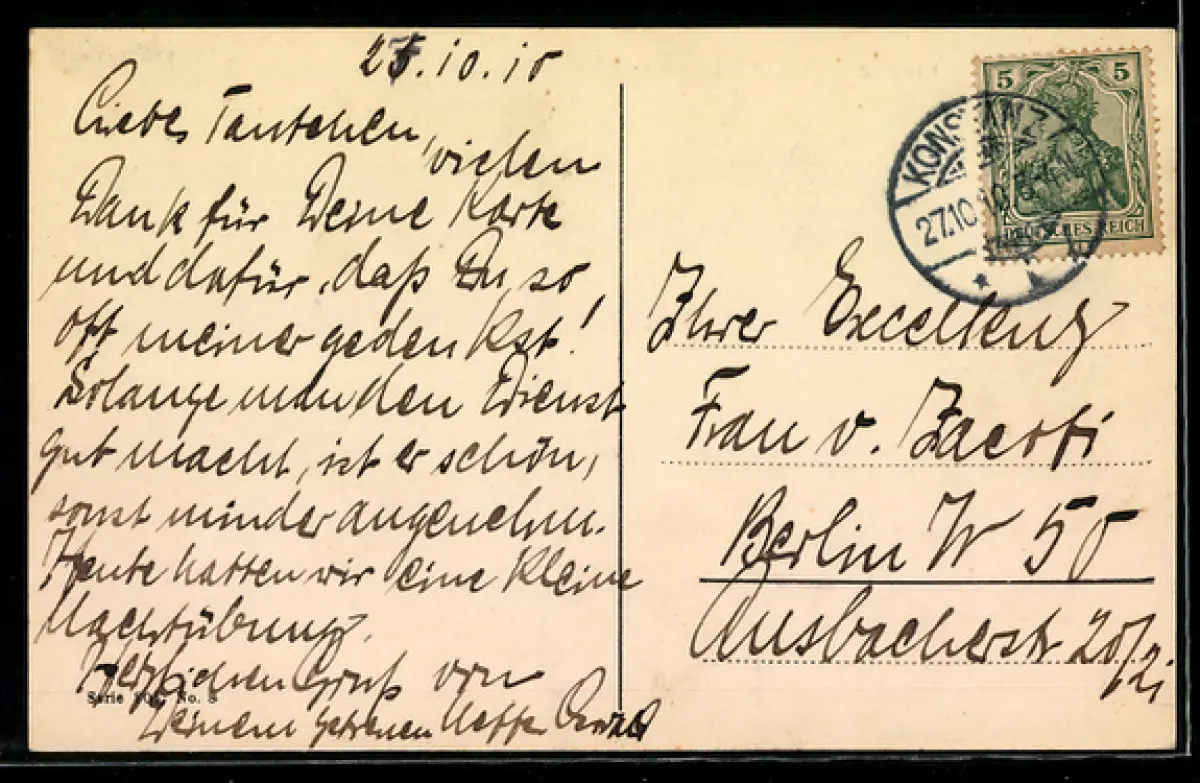 25.10.10
Liebes Tantchen,
vielen
Dank für Deine Karte
und dafür, daß Du so
oft meiner gedenkst!
Solange man den Dienst
gut macht, ist er schön,
sonst minder angenehm.
Heute hatten wir eine kleine
Nachtübung.
Herzlichen Gruß von
Deinem getreuen Neffen
Serie No. 8
5 5
DEUTSCHES REICH
KONSTANZ
27.10.10.
Ihrer Excellenz
Frau v. Jacobi
Berlin W 50
Ansbacherstr